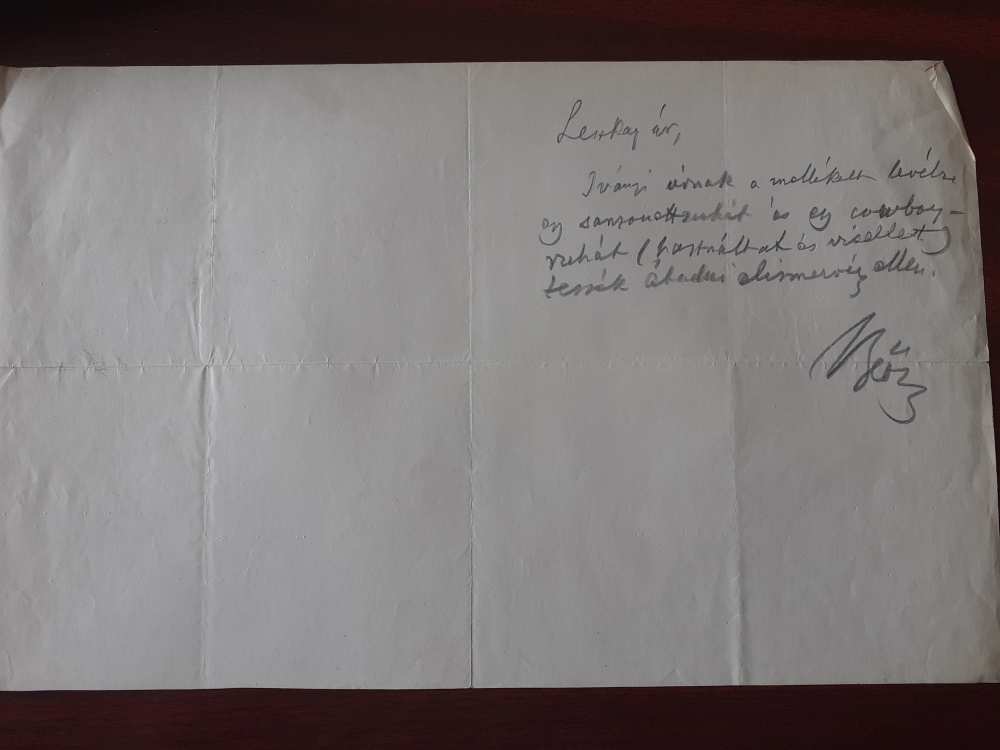 Leszkay úr,
Iványi úrnak a mellékelt levélre
egy sanzonettruhát és egy cowboy-
ruhát (használtat és viseltet)
tessék átadni elismervény ellen.